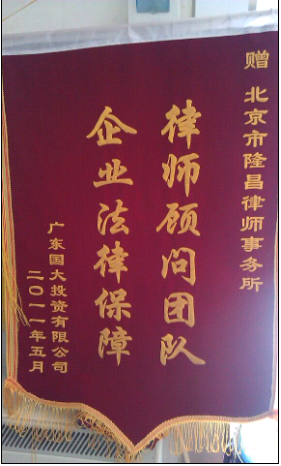 赠 北京市隆昌律师事务所
律师顾问团队
企业法律保障
广东国大投资有限公司
二〇一一年五月